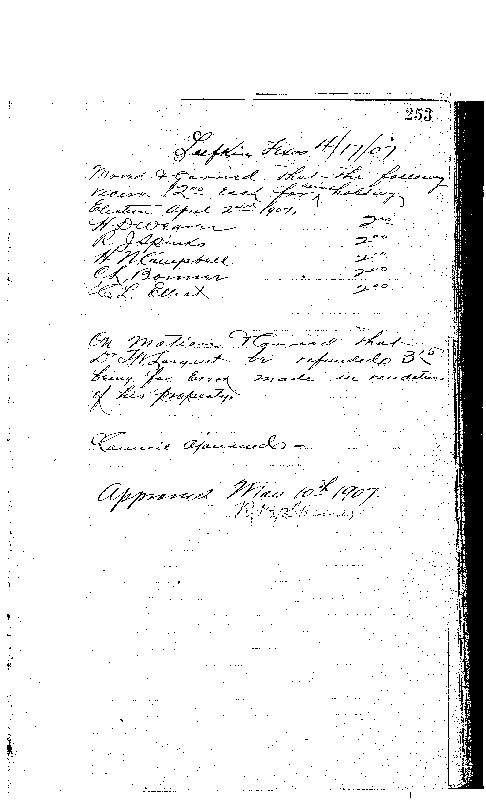 253
Lufkin Texas 4/17/07
Moved & Carried that the following
receive 2.00 each for holding
Election April 2nd 1907,
H D Weaver 2.00
R. J Spinks 2.00
H N Campbell 2.00
C L Bonner 2.00
L. Elliot 2.00
On Motion & Carried that
be refunded 3.15
being for error made in rendition
of his property.
Council Adjourned —
Approved May 10th 1907.